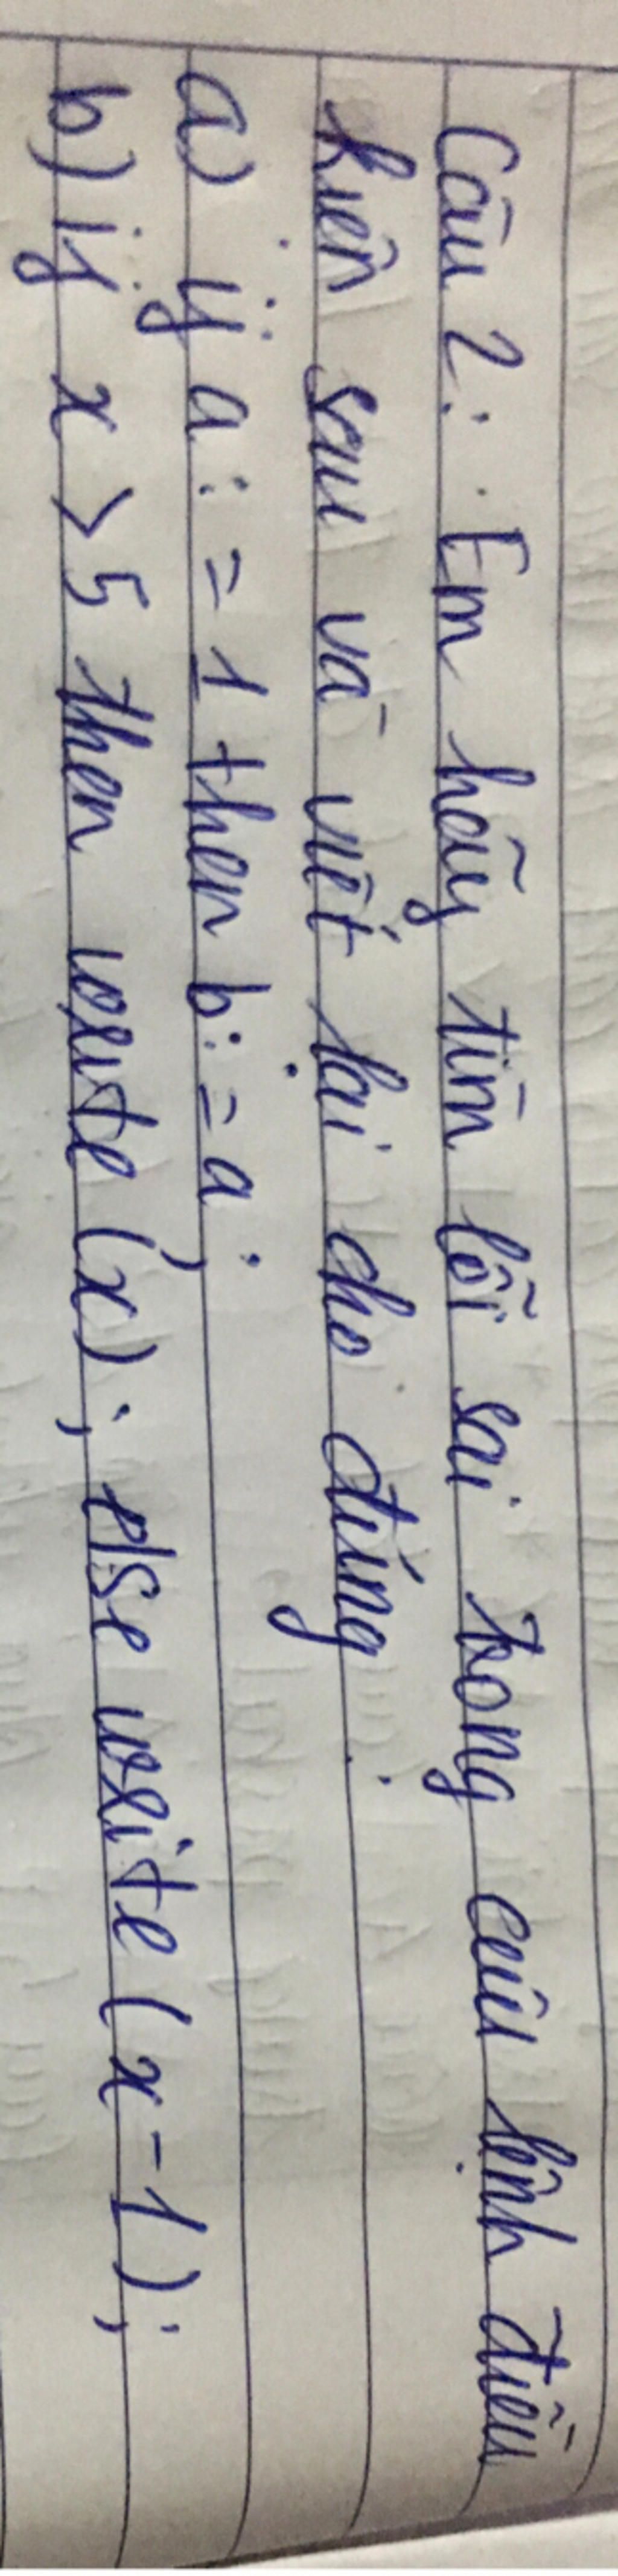 Câu 2: Em hãy tìm lỗi sai trong câu lệnh điều
kiện sau và viết lại cho đúng.
a) if a := 1 then b := a;
b) if x > 5 then write (x); else write (x - 1);